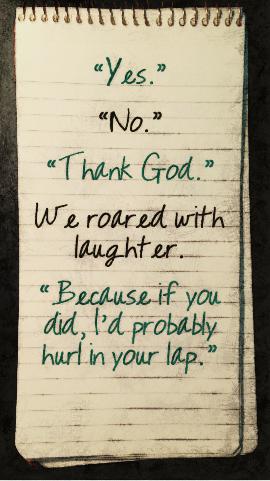 “Yes.”
“No.”
“Thank God.”
We roared with
laughter.
“Because if you
did, I'd probably
hurl in your lap.”